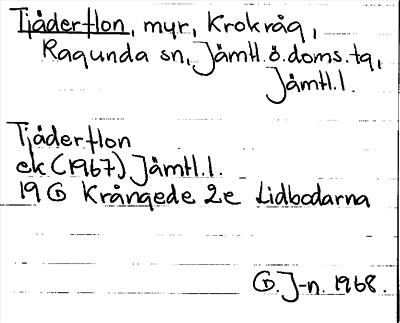 Tjåderflon, myr, Krokvåg,
Ragunda sn, Jämtl.ö.doms.tg,
Jämtl.l.
Tjåderflon
ek (1967) Jämtl.l.
19 G Krångede 2e Lidbodarna
G. J-n. 1968.